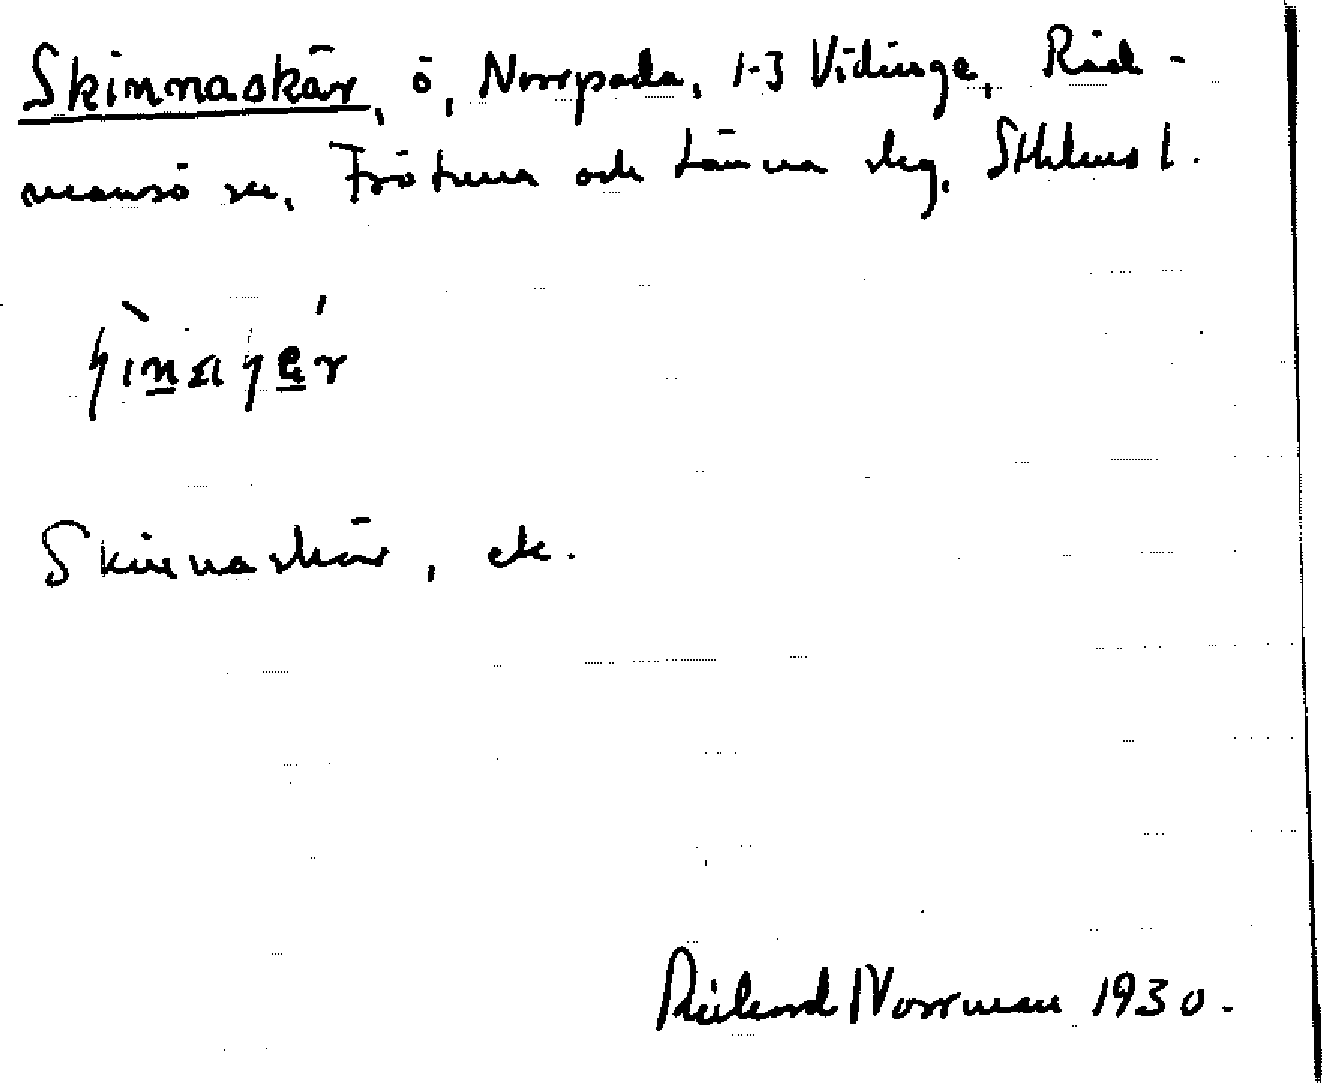 Skinnaskär, ö, Norrpada, 1-3 Vidinge, Råd-
mansö sn, Frötuna och Länna skg, Sthlms l.
Skinnaskär, ek.
Rikard Norrman 1930.